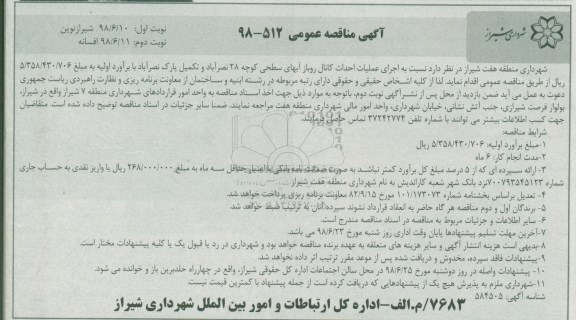 شهرداری شیراز
آگهی مناقصه عمومی ۵۱۲-۹۸
نوبت اول: ۹۸/۶/۱۰ شیرازنوین
نوبت دوم: ۹۸/۶/۱۱ افسانه
شهرداری منطقه هفت شیراز در نظر دارد نسبت به اجرای عملیات احداث کانال روباز آبهای سطحی کوچه ۲۸ نصرآباد و تکمیل پارک نصرآباد با برآورد اولیه به مبلغ ۵/۳۵۸/۴۳۰/۷۰۶
ریال از طریق مناقصه عمومی اقدام نماید. لذا از کلیه اشخاص حقیقی و حقوقی دارای رتبه مربوطه در رشته ابنیه و ساختمان از معاونت برنامه ریزی و نظارت راهبردی ریاست جمهوری
دعوت به عمل می آید ضمن بازدید از محل پس از نشر آگهی نوبت دوم، باتوجه به موارد ذیل جهت اخذ اسناد مناقصه به واحد امور قراردادهای شهرداری منطقه ۷ شیراز واقع در شیراز،
بولوار فرصت شیرازی، جنب آتش نشانی، خیابان شهرداری، واحد امور مالی شهرداری منطقه هفت مراجعه نمایند. ضمنا سایر جزئیات در اسناد مناقصه توضیح داده شده است. متقاضیان
جهت کسب اطلاعات بیشتر می توانند با شماره تلفن ۳۷۲۴۲۷۷۴ تماس حاصل فرمایند.
شرایط مناقصه:
۱-مبلغ برآورد اولیه: ۵/۳۵۸/۴۳۰/۷۰۶ ریال
۲-مدت انجام کار: ۶ ماه
۳- ارائه سپرده ای که از ۵ درصد مبلغ کل برآورد کمتر نباشد به صورت ضمانت نامه بانکی با اعتبار حداقل سه ماه به مبلغ ۲۶۸/۰۰۰/۰۰۰ ریال یا واریز نقدی به حساب جاری
شماره ۷۰۰۷۹۳۵۴۵۱۲۳ نزد بانک شهر شعبه کاراندیش به نام شهرداری منطقه هفت شیراز
۴- تعدیل براساس بخشنامه شماره ۱۰۱/۱۷۳۰۷۳ مورخ ۸۲/۹/۱۵ معاونت برنامه ریزی پرداخت خواهد شد.
۵- برندگان اول و دوم مناقصه هر گاه حاضر به انعقاد قرارداد نشوند سپرده آنان به ترتیب ضبط خواهد شد.
۶- سایر اطلاعات و جزئیات مربوط به مناقصه در اسناد مناقصه مندرج است.
۷-آخرین مهلت تسلیم پیشنهادها پایان وقت اداری روز شنبه مورخ ۹۸/۶/۲۳ می باشد.
۸-بدیهی است هزینه انتشار آگهی و سایر هزینه های متعلقه به عهده برنده مناقصه خواهد بود و شهرداری در رد یا قبول یک یا کلیه پیشنهادات مختار است.
۹-پیشنهادات فاقد سپرده، مخدوش و دریافت شده پس از موعد مقرر ترتیب اثر داده نخواهد شد.
۱۰- پیشنهادات واصله در روز دوشنبه مورخ ۹۸/۶/۲۵ در محل سالن اجتماعات اداره کل حقوقی شیراز، واقع در چهارراه خلدبرین باز و خوانده می شود.
۱۱-شهرداری ملزم به پذیرش هیچ یک از پیشنهادهایی که دریافت کرده است از جمله پیشنهاد با کمترین قیمت نیست.
شناسه آگهی: ۵۸۴۵۰۵
۷۶۸۳/م.الف-اداره کل ارتباطات و امور بین الملل شهرداری شیراز